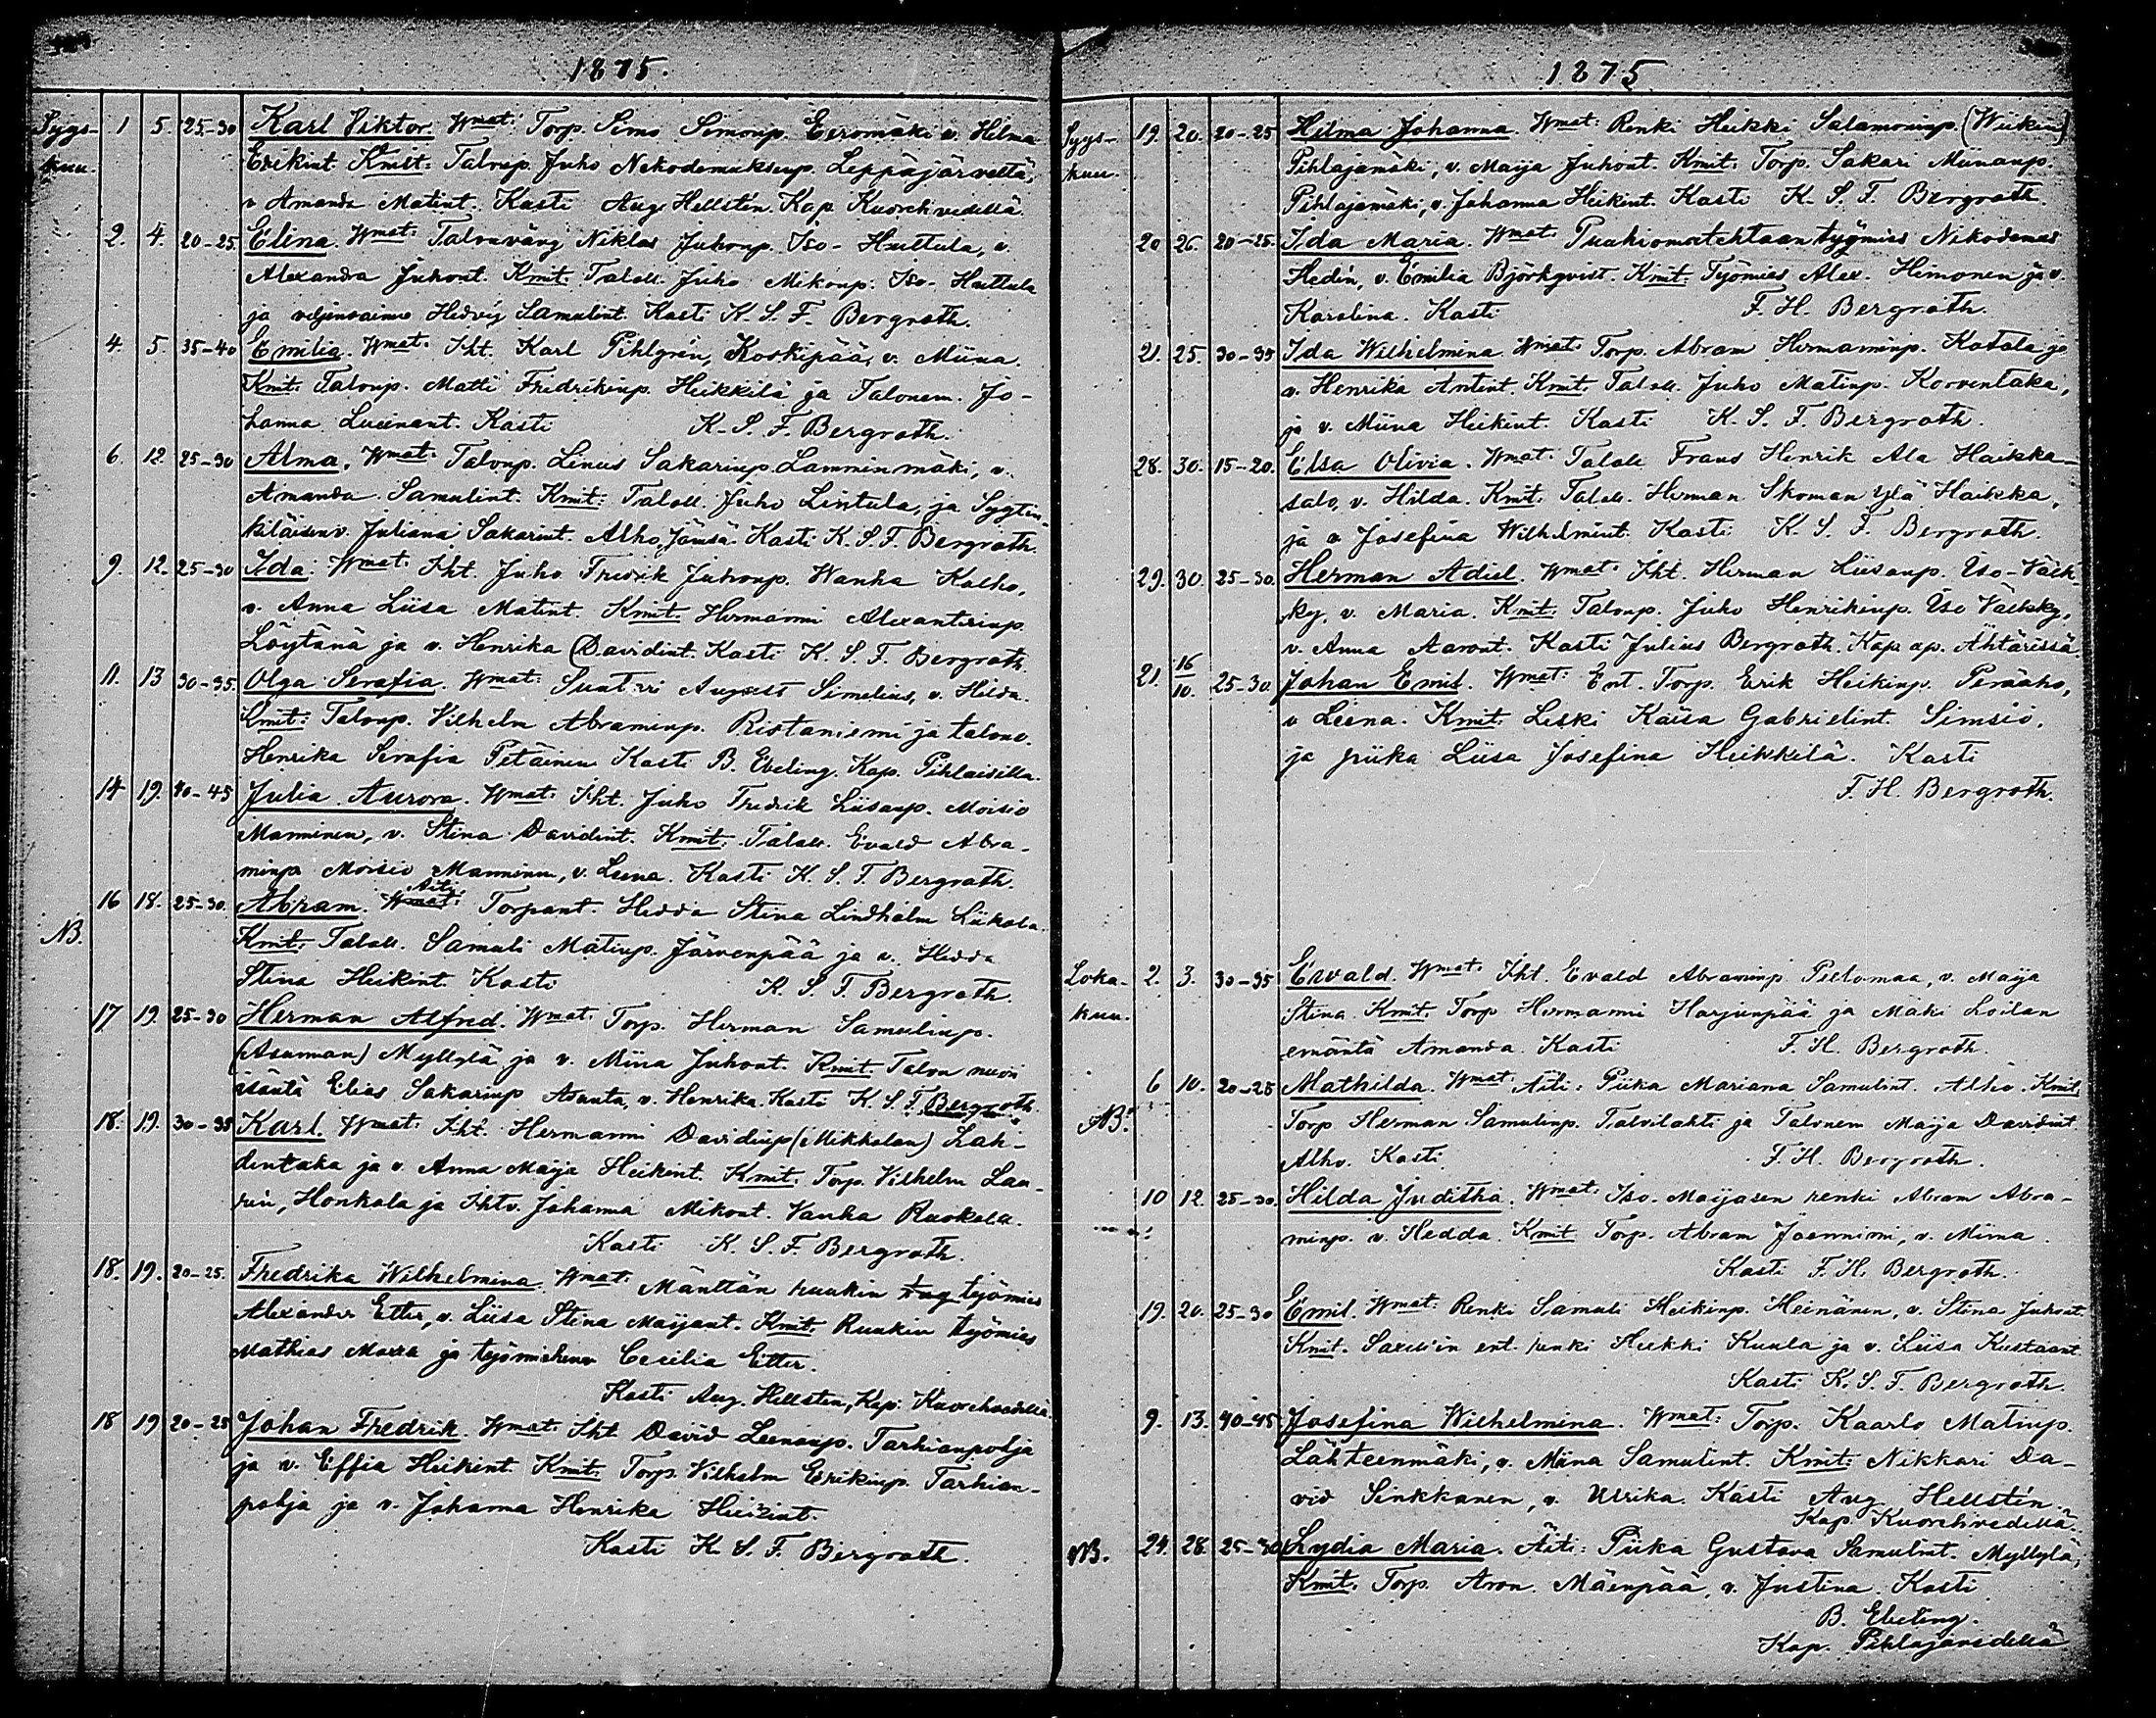 1875.
Syys- 1 5 25-30 Karl Viktor. Wmat: Torp. Simo Simonp. Eeromäki v. Hilma
kuu. Erikint. Kmit: Talonp. Juho Nikodemuksenp. Leppäjärveltä,
v Amanda Matint. Kasti Aug. Hellstén. Kap. Kuorehvedellä.
2. 4. 20-25. Elina. Wmat: Talonvävy Niklas Juhonp. Iso-Huttula, v.
Alexandra Juhont. Kmit: Taloll. Juho Mikonp. Iso-Huttula
ja veljenvaimo Hedvig Samulint. Kasti K. S. F. Bergroth.
4. 5. 35-40 Emilia. Wmat: Iht. Karl Pihlgrén, Koskipää, v. Miina.
Kmit: Talonp. Matti Fredrikinp. Heikkilä ja Talonem. Jo-
hanna Kasti K. S. F. Bergroth.
6. 12. 25-30 Alma. Wmat: Talonp. Linus Sakarinp. Lamminmäki, v.
Amanda Samulint. Kmit: Taloll. Juho Lintula, ja Syytin-
kiläisenv. Juliana Sakarint. Alho, Jämsä. Kasti K. S. F. Bergroth.
9. 12. 25-30 Ida. Wmat: Iht. Juho Fredrik Juhonp. Wanha Kolho,
v. Anna Liisa Matint. Kmit: Hermanni Alexanterinp.
Löytänä ja v. Henrika Davidint. Kasti K. S. F. Bergroth.
11. 13 30-35. Olga Serafia. Wmat: Suntari August Simelius, v. Hilda.
Kmit: Talonp. Vilhelm Abraminp. Ristaniemi ja talonv.
Henrika Serafia Petäinen Kasti B. Ebeling. Kap.
14 19. 40-45 Julia Aurora. Wmat: Iht. Juho Fredrik Liisanp. Moisio
Manninen, v. Stina Davidint. Kmit: Taloll. Evald Abra-
minp. Moisio Manninen, v. Leena. Kasti K. S. F. Bergroth.
Äiti
16 18. 25-30. Abram. Wmat: Torpant. Hedda Stina Lindholm Liikola.
NB. Kmit: Taloll. Samuli Matinp. Järvenpää ja v. Hedda
Stina Heikint. Kasti K. S. F. Bergroth.
17 19. 25-30 Herman Alfred. Wmat: Torp. Herman Samulinp.
(Asunnan) Myllylä ja v. Miina Juhont. Kmit: Talon nuori
isäntä Elias Sakarinp Asunta, v. Henrika. Kasti K. S. F. Bergroth.
18. 19. 30-35 Karl. Wmat: Iht. Hermanni Davidinp (Mikkolan) Lah-
dentaka ja v. Anna Maija Heikint. Kmit: Torp. Vilhelm Lau-
rin, Honkola ja Ihtv. Johanna Mikont. Vanha Ruokola.
Kasti K. S. F. Bergroth.
18. 19. 20-25. Fredrika Wilhelmina. Wmat: Mänttän ruukin työmies
Alexander Etter, v. Liisa Stina Maijant. Kmit: Ruukin työmies
Mathias ja työmiehenv Cecilia Etter.
Kasti Aug. Hellstén, Kap. Kuorehvedellä.
18 19 20-25 Johan Fredrik. Wmat: Iht. David Leenanp. Tarhianpohja
ja v. Effia Heikint. Kmit: Torp. Vilhelm Erikinp. Tarhian-
pohja ja v. Johanna Henrika Heikint.
Kasti K. S. F. Bergroth.
1875
Syys- 19. 20. 20-25 Hilma Johanna. Wmat: Renki Heikki Salamoninp.
kuu. Pihlajamäki, v. Maija Juhont. Kmit: Torp. Sakari Miinanp.
Pihlajamäki, v. Johanna Heikint. Kasti K. S. F. Bergroth.
20 26. 20-25. Ida Maria. Wmat: Puuhiomatehtaan työmies Nikodemus
Hedén, v. Emilia Björkqvist. Kmit: Työmies Alex. Heimonen ja v.
Karolina. Kasti F. H. Bergroth.
21. 25. 30-35 Ida Wilhelmina. Wmat: Torp. Abram Hermanninp. Kotala ja
v. Henrika Antint. Kmit: Taloll. Juho Matinp. Korventaka,
ja v. Miina Heikint. Kasti K. S. F. Bergroth.
28. 30. 15-20. Elsa Olivia. Wmat: Taloll. Frans Henrik Ala Haikka-
salo, v. Hilda. Kmit: Taloll. Herman Skoman Ylä Haikka,
ja v Josefina Wilhelmint. Kasti K. S. F. Bergroth.
29. 30. 25-30. Herman Adiel. Wmat: Iht. Herman Liisanp. Iso-Väih-
ky, v. Maria. Kmit: Talonp. Juho Henrikinp. Iso Väihky,
v. Anna Aaront. Kasti Julius Bergroth. Kap. ap. Ähtärissä.
21. 16/10. 25-30. Johan Emil. Wmat: Ent. Torp. Erik Heikinp. Peräaho,
v Leena. Kmit: Leski Kaisa Gabrielint. Simsiö,
ja piika Liisa Josefina Heikkilä. Kasti
F. H. Bergroth.
Loka- 2. 3. 30-35 Ewald. Wmat: Iht. Evald Abraminp. Pielomaa, v. Maija
kuu. Stina. Kmit: Torp Hermanni Harjunpää ja Mäki Loilan
emäntä Amanda. Kasti F. H. Bergroth.
6 10. 20-25 Mathilda. Wmat: Äiti: Piika Mariana Samulint. Alho. Kmit:
NB. Torp Herman Samulinp. Talvilahti ja Talonem Maija Davidint.
Alho. Kasti F. H. Bergroth.
10 12. 25-30. Hilda Juditha. Wmat: Iso-Maijasen renki Abram Abra-
minp. v. Hedda. Kmit: Torp. Abram Joenniemi, v. Miina.
Kasti F. H. Bergroth.
19. 20. 25-30 Emil. Wmat: Renki Samuli Heikinp. Heinänen, v. Stina Juhont.
Kmit. ent. renki Heikki Kuula ja v. Liisa Kustaant.
Kasti K. S. F. Bergroth.
9. 13. 40-45 Josefina Wilhelmina. Wmat: Torp. Kaarlo Matinp.
Lähteenmäki, v. Miina Samulint. Kmit: Nikkari Da-
vid Sinkkanen, v. Ulrika. Kasti Aug Hellstén.
Kap. Kuorehvedellä.
NB. 24. 28. 25-30 Lydia Maria. Äiti: Piika Gustava Samulint. Myllylä,
Kmit: Torp. Aron Mäenpää, v. Justina. Kasti
B. Ebeling.
Kap. Pihlajavedellä